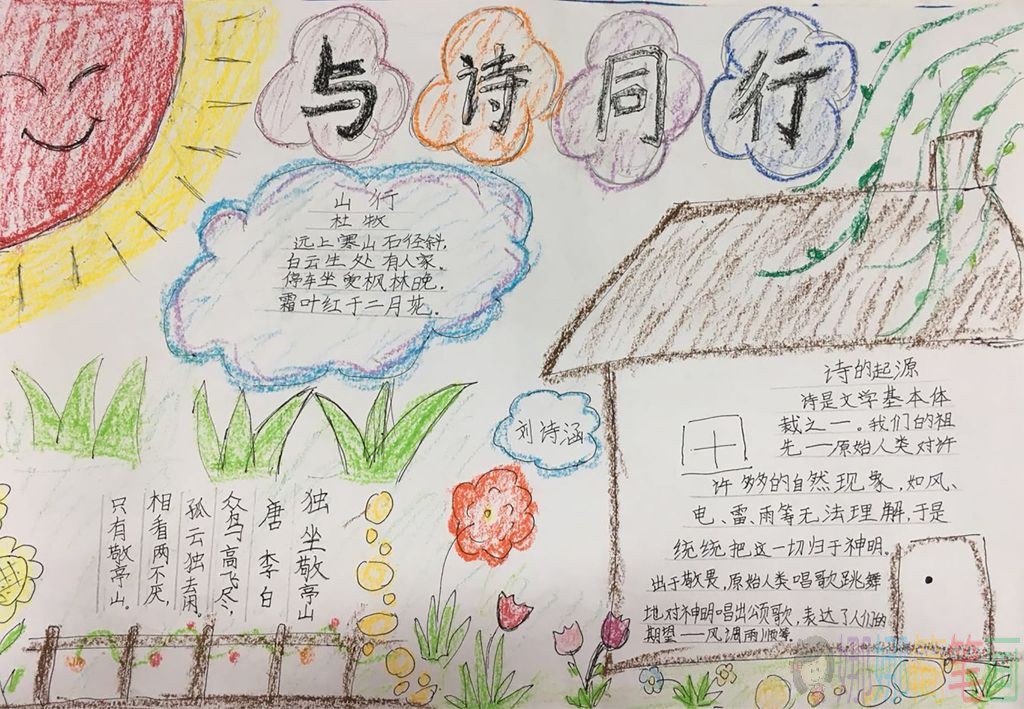 与诗同行
山行
杜牧
远上寒山石径斜，
白云生处有人家。
停车坐爱枫林晚，
霜叶红于二月花。
刘诗涵
诗的起源
诗是文学基本体
裁之一。我们的祖
先——原始人类对许
许多多的自然现象，如风、
电、雷、雨等无法理解，于是
统统把这一切归于神明。
出于敬畏，原始人类唱歌跳舞
地对神明唱出颂歌，表达了人们的
期望——风调雨顺等
独坐敬亭山
唐 李白
众鸟高飞尽，
孤云独去闲。
相看两不厌，
只有敬亭山。